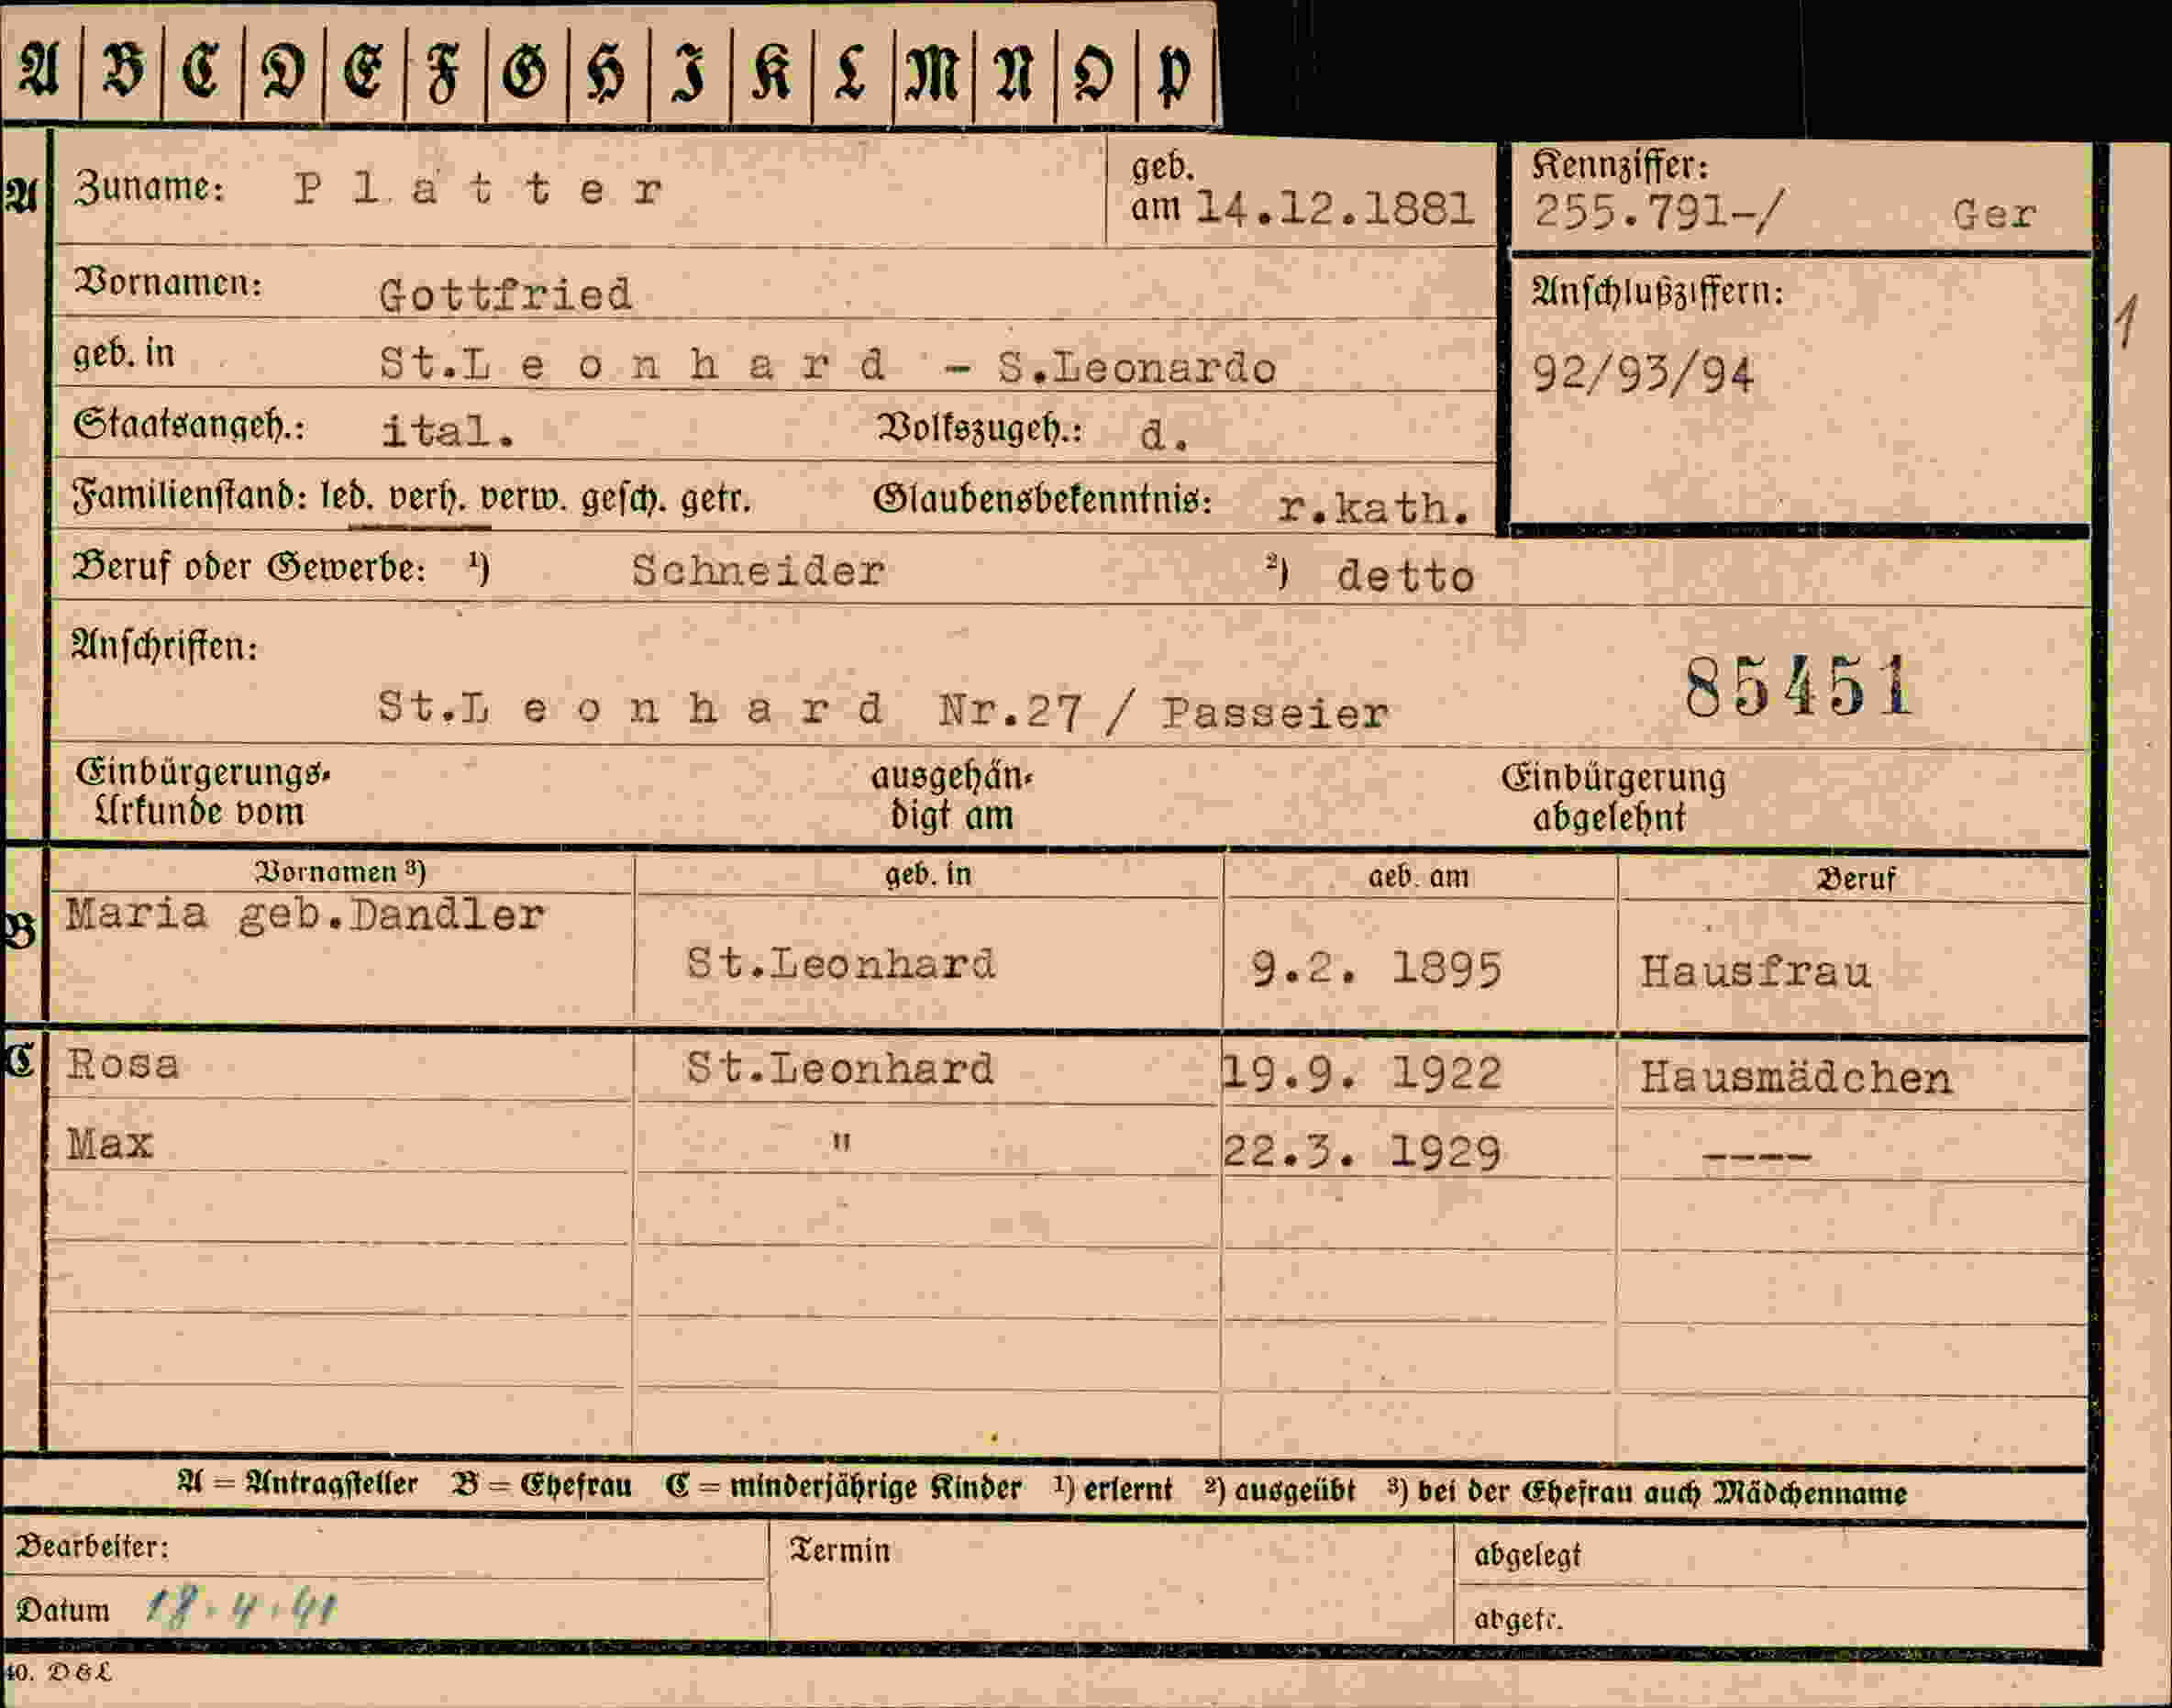 A B C D E F G H I K L M N O P
A Zuname: Platter geb. am 14.12.1881 Kennziffer: 255.791-/ Ger
Vornamen: Gottfried Anschlußziffern:
geb. in St.Leonhard - S.Leonardo 92/93/94 1
Staatsangeh.: ital. Volkszugeh.: d.
Familienstand: led. verh. verw. gesch. getr. Glaubensbekenntnis: r.kath.
Beruf oder Gewerbe: ¹) Schneider ²) detto
Anschriften:
St.Leonhard Nr.27 / Passeier 85451
Einbürgerungs- ausgehän- Einbürgerung
Urkunde vom digt am abgelehnt
Vornamen ³) geb. in geb. am Beruf
B Maria geb.Dandler
St.Leonhard 9.2. 1895 Hausfrau
C Rosa St.Leonhard 19.9. 1922 Hausmädchen
Max " 22.3. 1929 ----
A = Antragsteller B = Ehefrau C = minderjährige Kinder ¹) erlernt ²) ausgeübt ³) bei der Ehefrau auch Mädchenname
Bearbeiter: Termin abgelegt
Datum 18.4.41 abgetr.
40. DGL